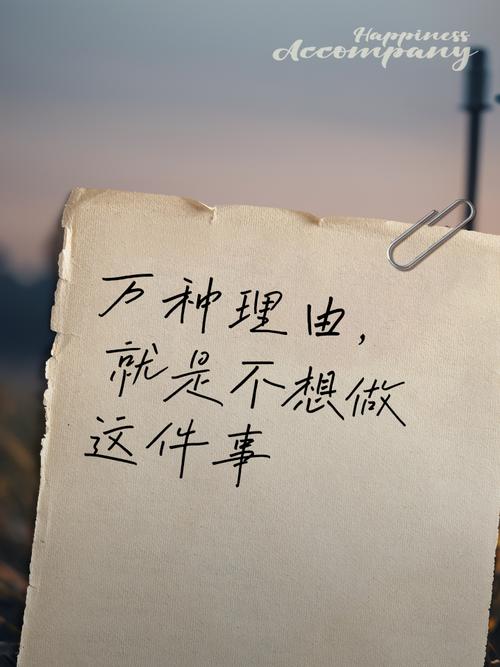 Happiness
Accompany
万种理由,
就是不想做
这件事